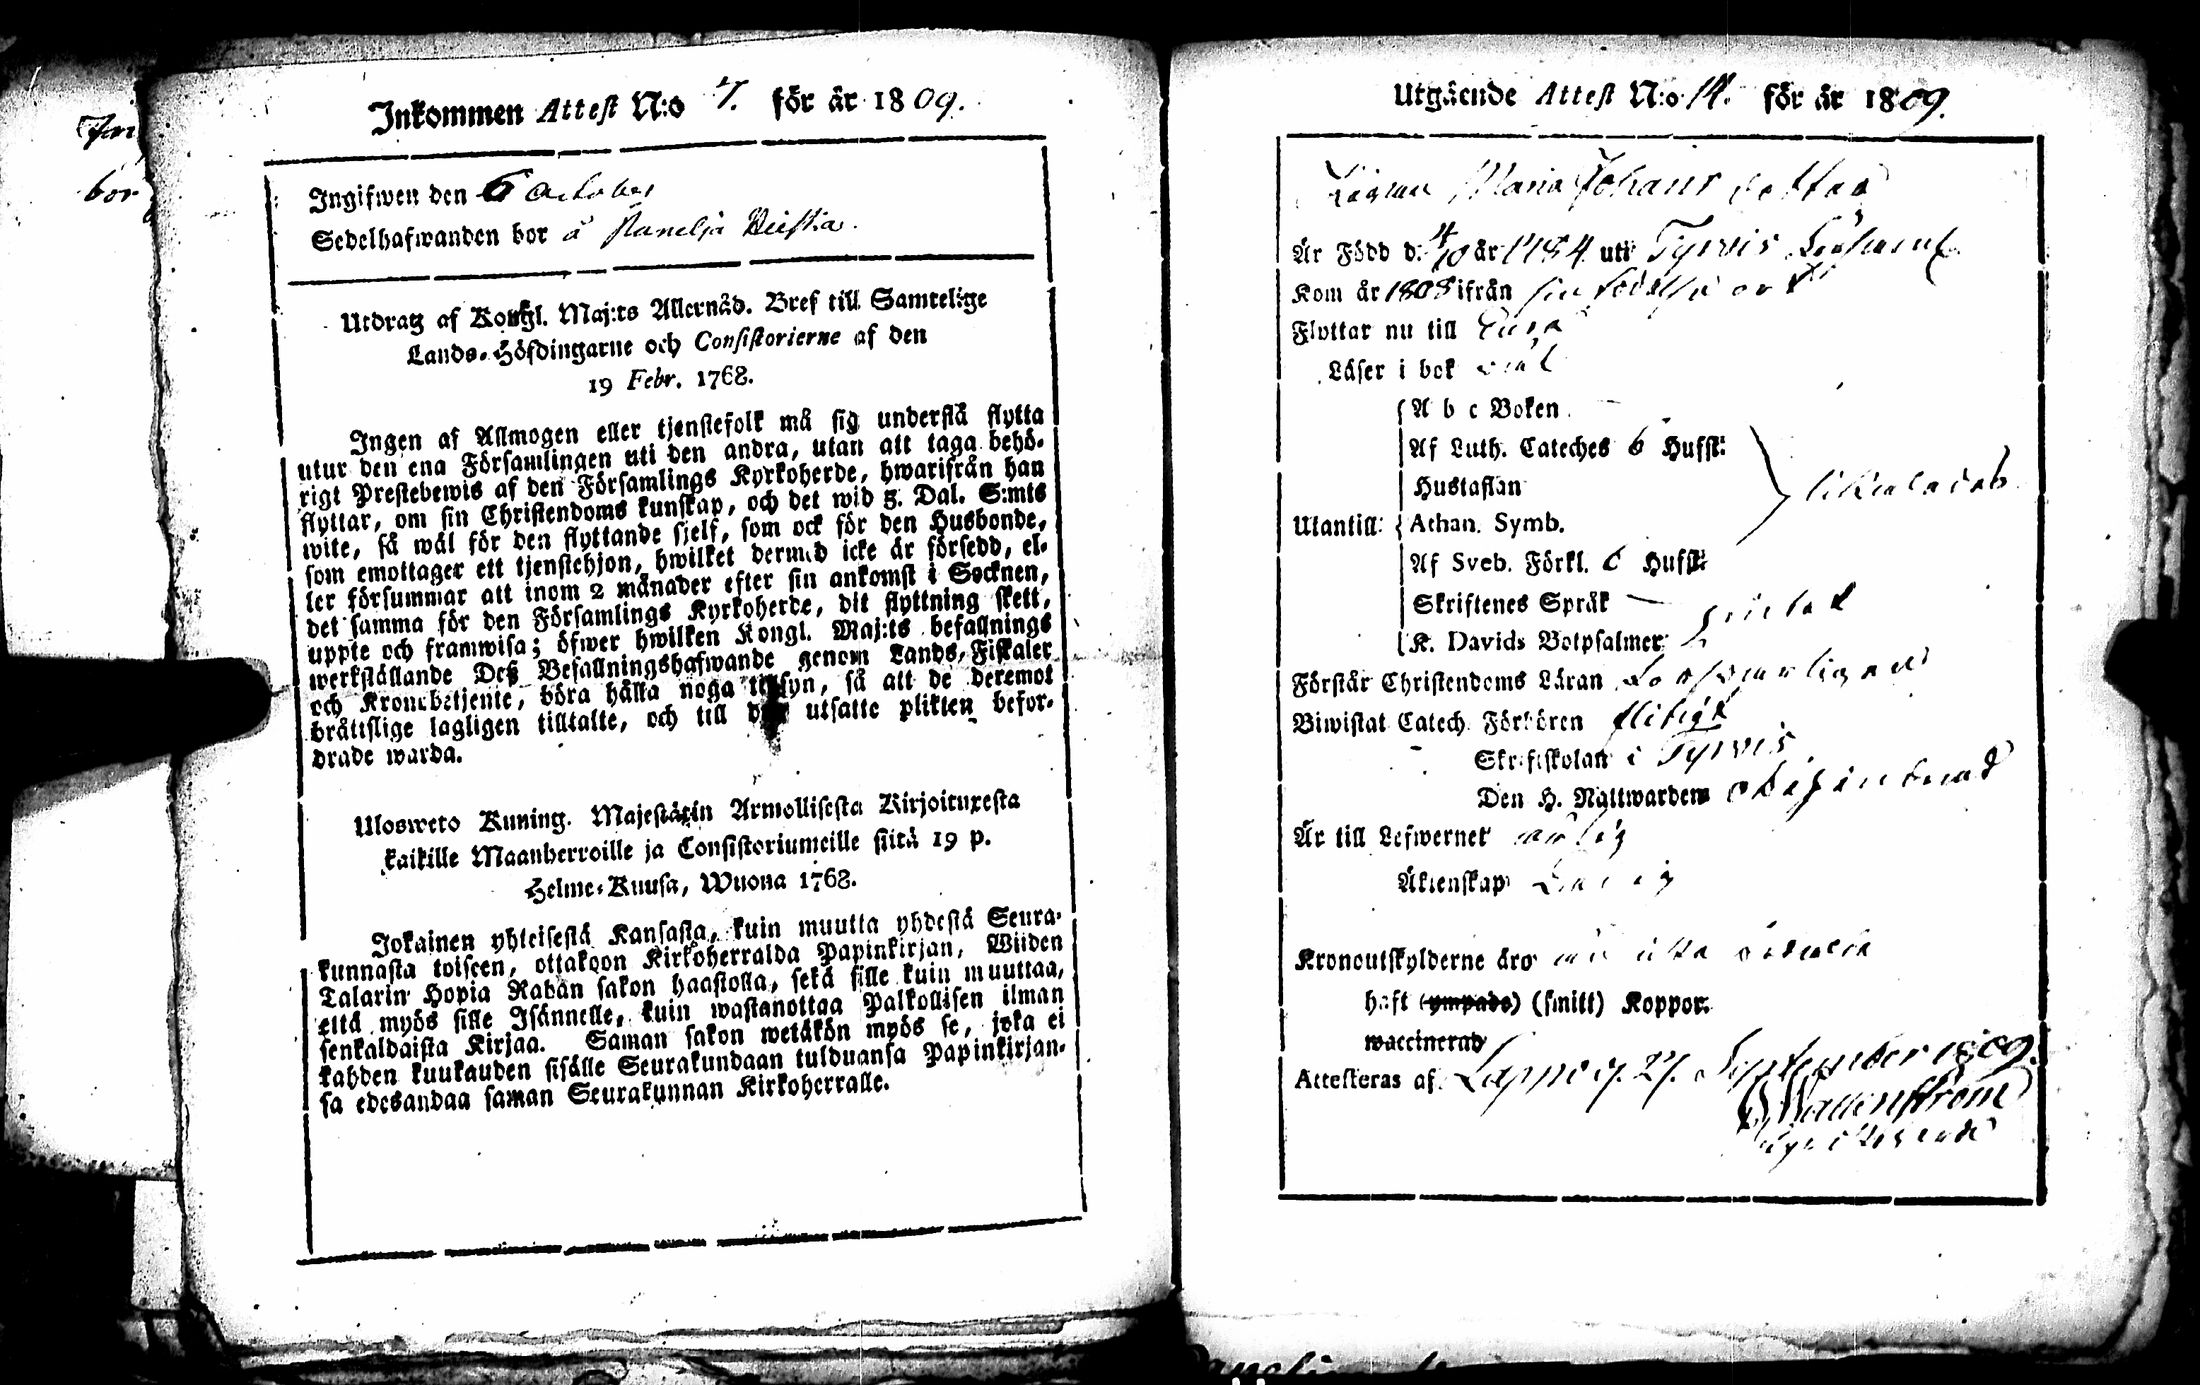 Inkommen Attest N:o 7. för år 1809.
Ingifwen den 6 October
Sedelhafwanden bor å
Utdrag af Kongl. Maj:ts Allernåd. Bref till Samtelige
Lands-Höfdingarne och Consistorierne af den
19 Febr. 1768.
Ingen af Allmogen eller tjenstefolk må sig understå flytta
utur den ena Församlingen uti den andra, utan att taga behö-
rigt Prestebewis af den Församlings Kyrkoherde, hwarifrån han
flyttar, om sin Christendoms kunskap, och det wid 3. Dal. S:mts
wite, så wäl för den flyttande sjelf, som ock för den Husbonde,
som emottager ett tjenstehjon, hwilket dermed icke är försedd, el-
ler försummar att inom 2 månader efter sin ankomst i Socknen,
det samma för den Församlings Kyrkoherde, dit flyttning skett,
uppte och framwisa; öfwer hwilken Kongl. Maj:ts befallnings
werkställande Deß Befallningshafwande genom Lands-Fiskaler
och Kronobetjente, böra hålla noga tillsyn, så att de deremot
bråttslige lagligen tilltalte, och till den utsatte plikten befor-
drade warda.
Ulosweto Kuning. Majestätin Armollisesta Kirjoituxesta
kaikille Maanherroille ja Consistoriumeille siitä 19 p.
Helme-Kuusa, Wuona 1768.
Jokainen yhteisestä Kansasta, kuin muutta yhdestä Seura-
kunnasta toiseen, ottakoon Kirkoherralda Papinkirjan, Wiiden
Talarin Hopia Rahan sakon haastolla, sekä sille kuin muuttaa,
että myös sille Isännelle, kuin wastanottaa Palkollisen ilman
senkaldaista Kirjaa. Saman sakon wetäkön myös se, joka ei
kahden kuukauden sisälle Seurakundaan tulduansa Papinkirjan-
sa edesandaa saman Seurakunnan Kirkoherralle.
Utgående Attest N:o 14. för år 1809.
Maria Johans dotter
Är Född d. 4/10 år 1784 uti Tyrvis
Kom år 1808 ifrån sin födelse ort
Flyttar nu till Eura
Läser i bok wäl
A b c Boken
Af Luth. Cateches 6 Hufst:
Hustaflan
Utantill: Athan. Symb.
likaledes
Af Sveb. Förkl. 6 Hufst:
Skriftenes Språk
K. Davids Botpsalmer
Förstår Christendoms Läran
Biwistat Catech. Förhören flitigt
Skriftskolan i Tyrvis
Den H. Nattwarden
Är till Lefwernet
Äktenskap Ledig
Kronoutskylderne äro
haft (ympade) (smitt) Koppor.
waccinerad
Attesteras af Lappo d. 27. September 1809.
Wallenström